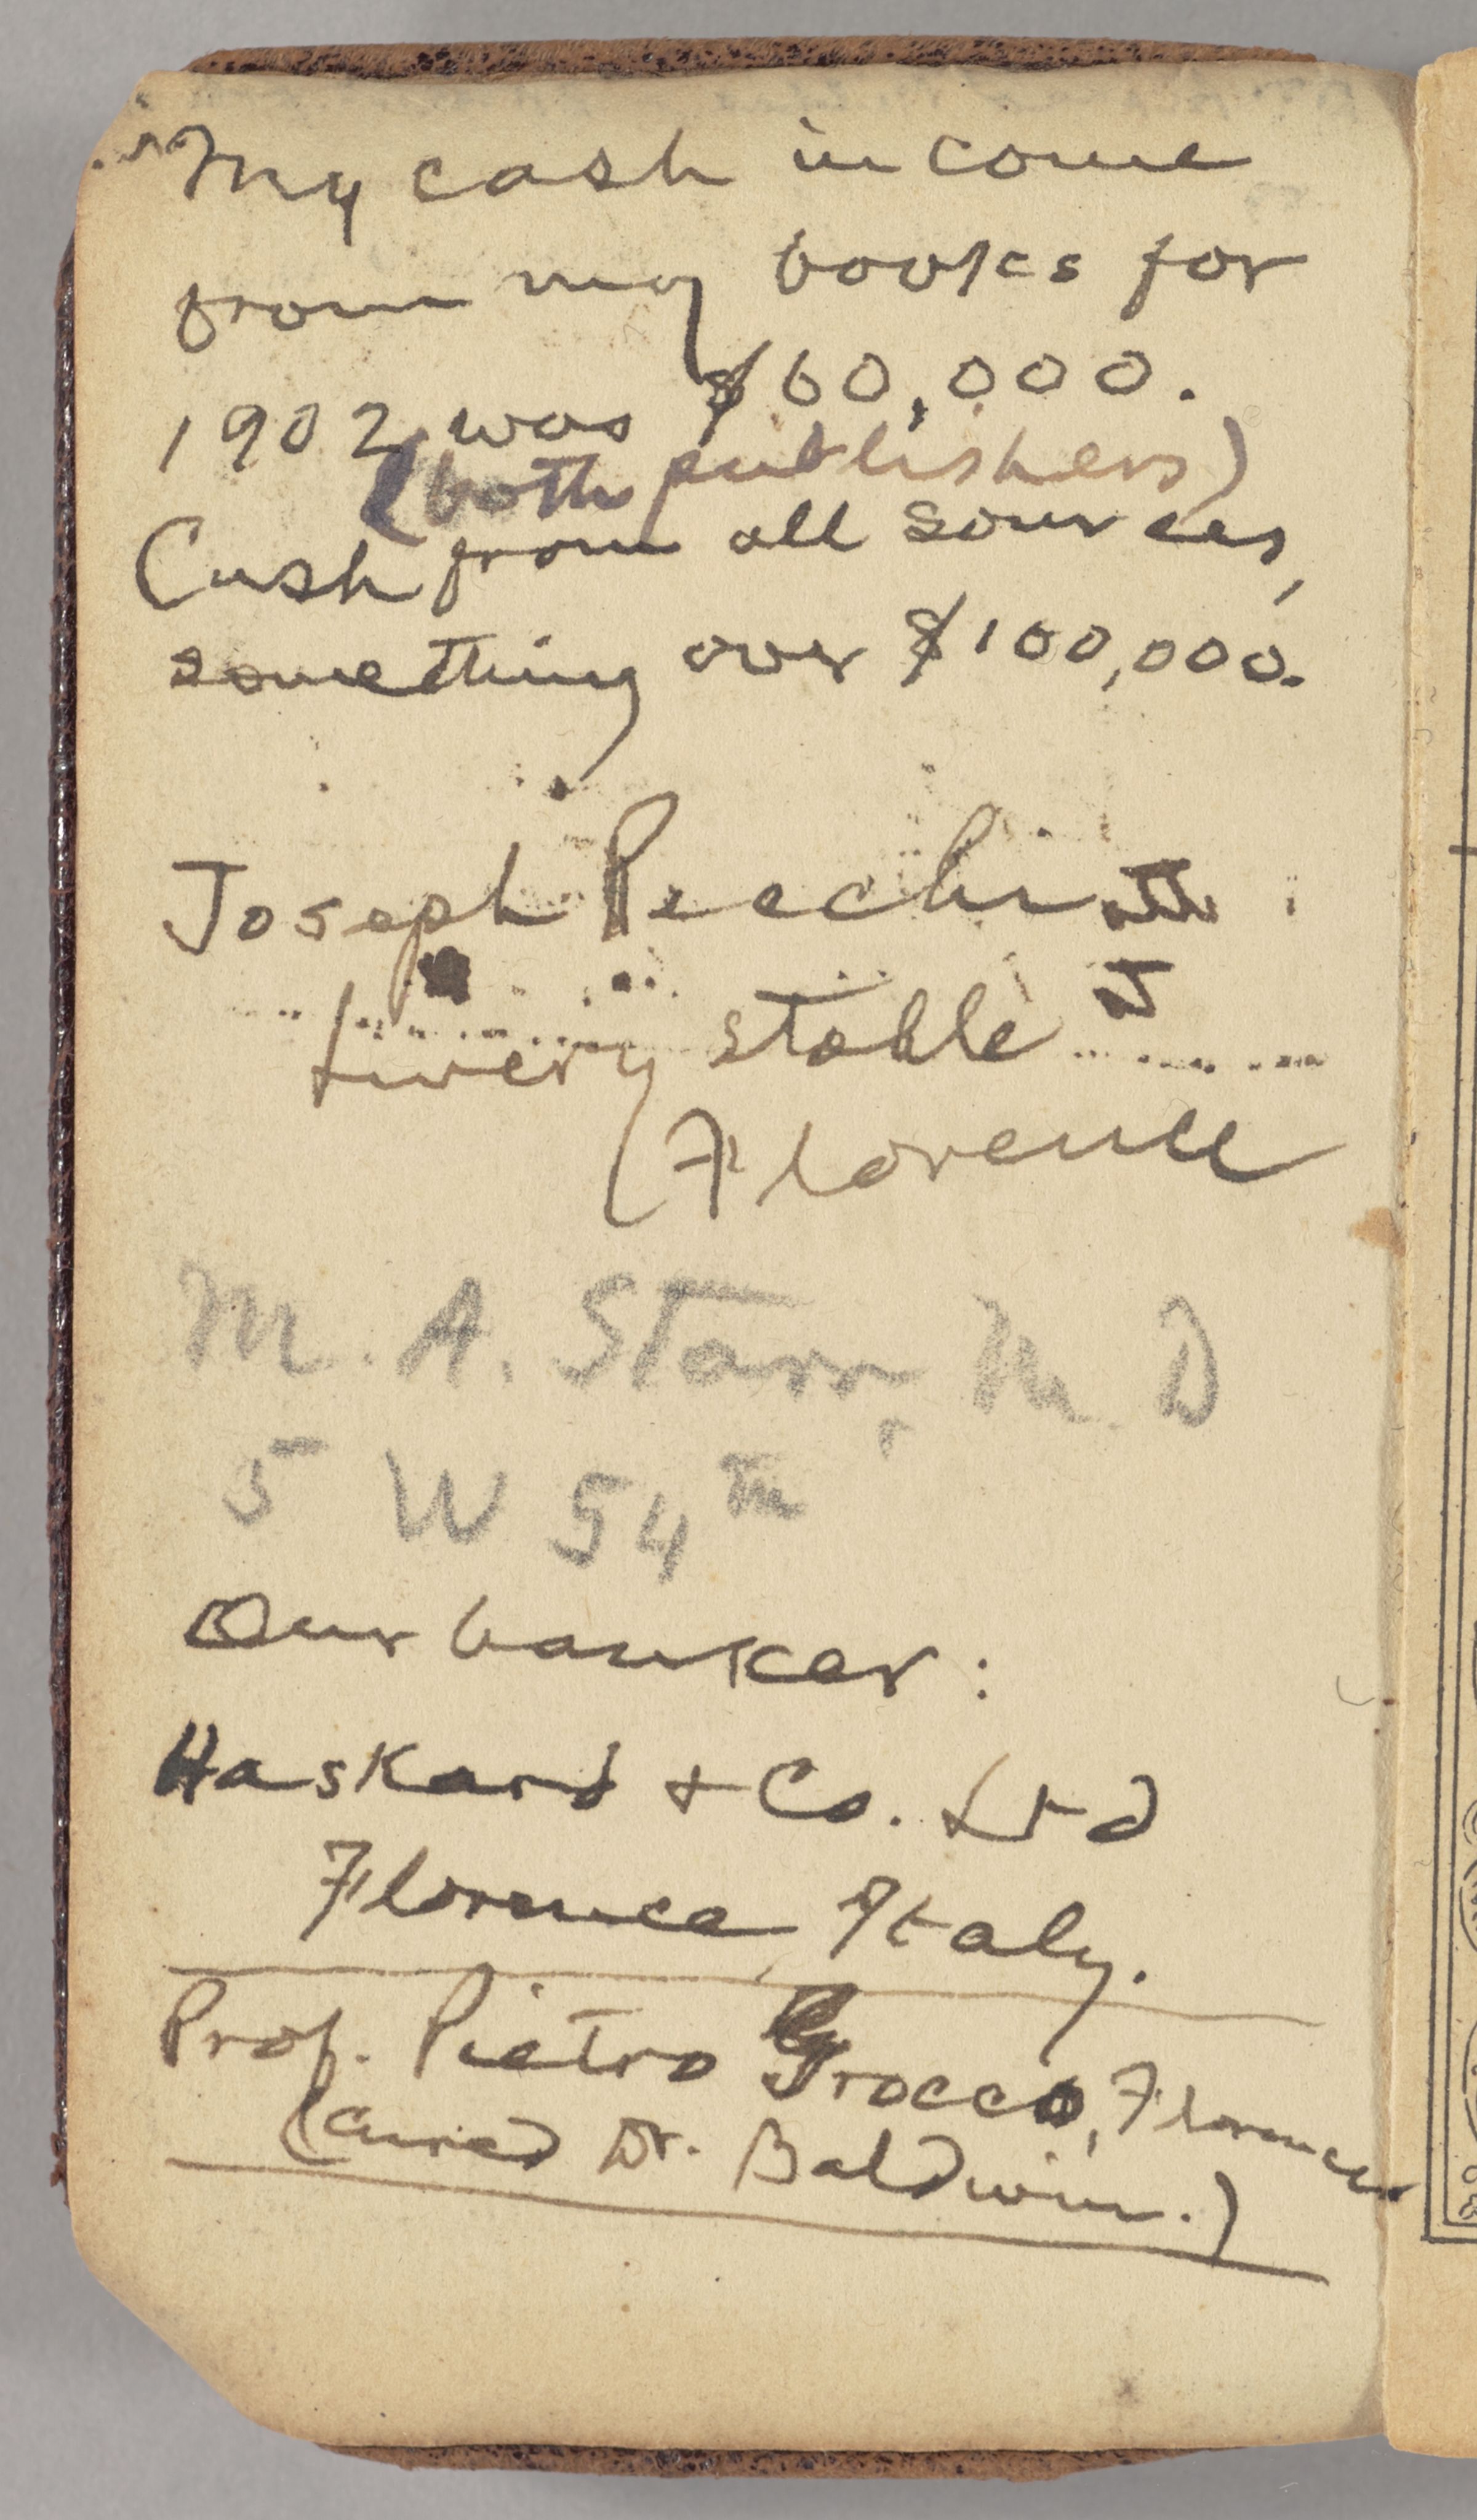 My cash income
from my books for
1902 was $60,000.
(both publishers)
Cash from all sources,
something over $100,000.
Joseph
Livery stable
(Florence
M. A. Starr, M. D
5 W 54th
Our banker:
Haskard + Co. Ltd
Florence, Italy.
Prof. Pietro Grocco, Florence
(cured Dr. Baldwin.)